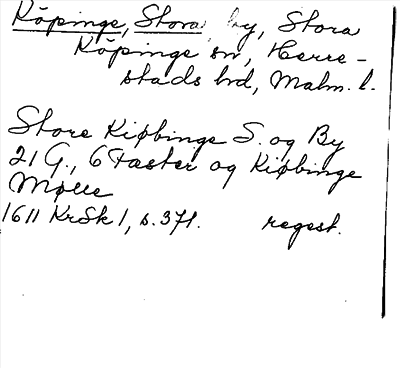 Köpinge, Stora by, Stora
Köpinge sn, Herre-
stads hd, Malm. l.
Store Kiøbinge S. og By
21 G., 6 Fæster og Kiøbinge
Mølle
1611 KrSk 1, s. 371. regest.